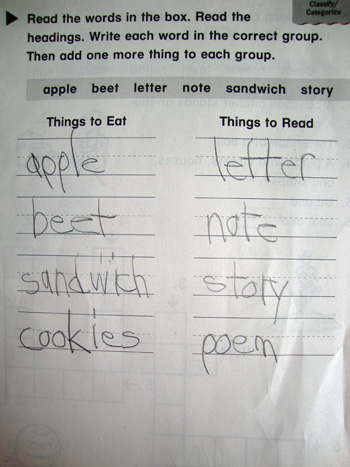 Classify/
Categorize
Read the words in the box. Read the
headings. Write each word in the correct group.
Then add one more thing to each group.
apple beet letter note sandwich story
Things to Eat Things to Read
apple letter
beet note
sandwich story
cookies poem